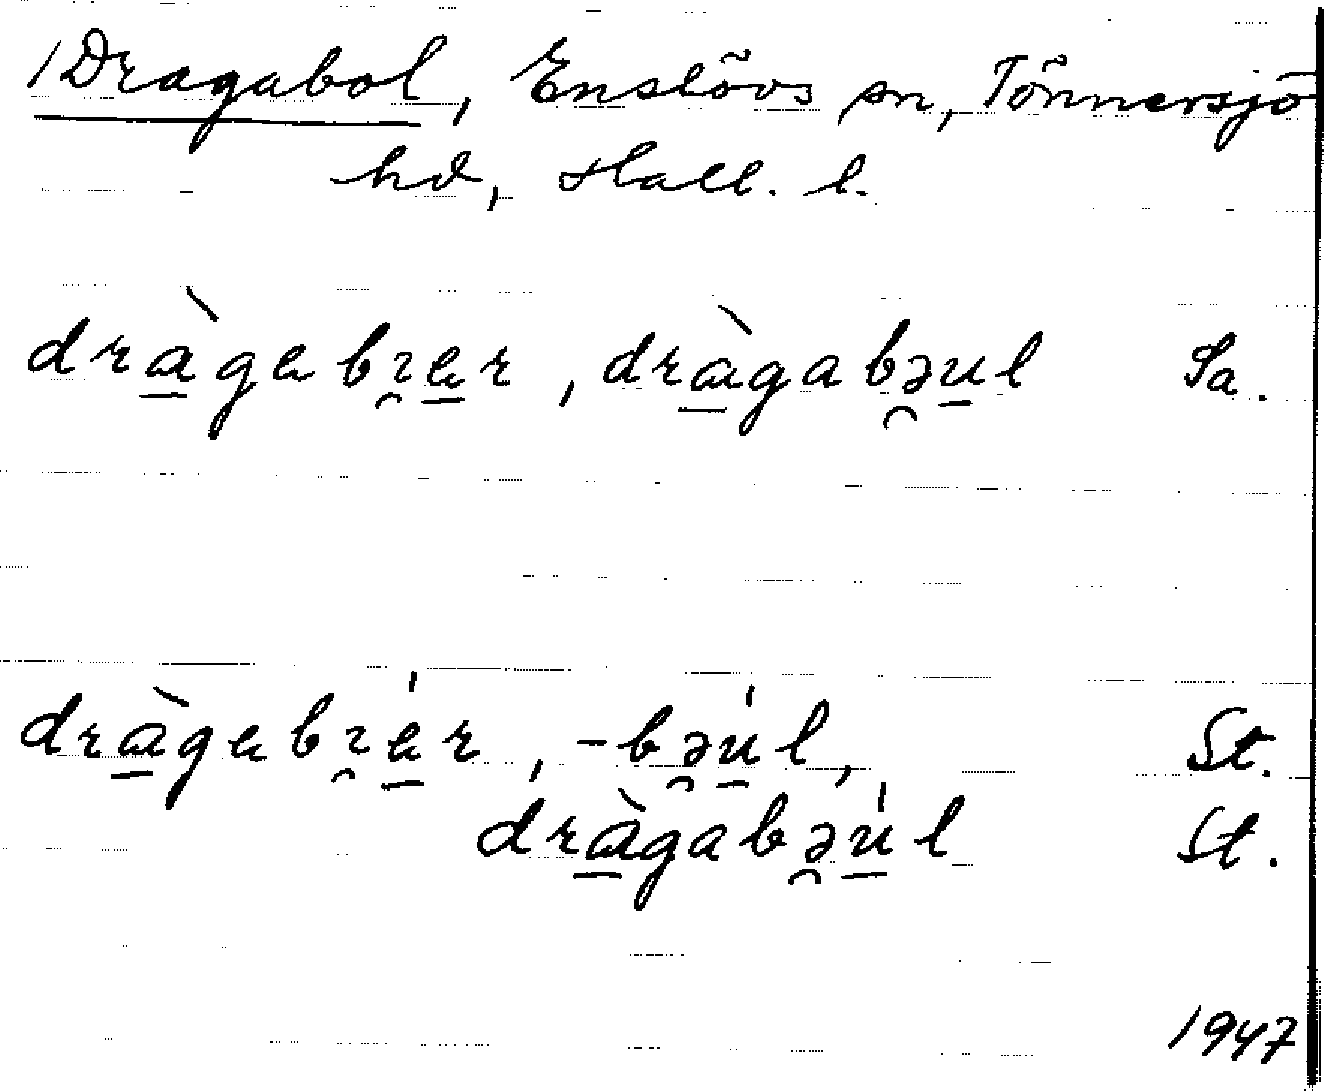 /Dragabol, Enslövs sn, Tönnersjö
hd, Hall. l.
dràgabɿar, dràgabəul Sa.
dràgabɿár, -bəúl, St.
dràgabəúl St.
1947